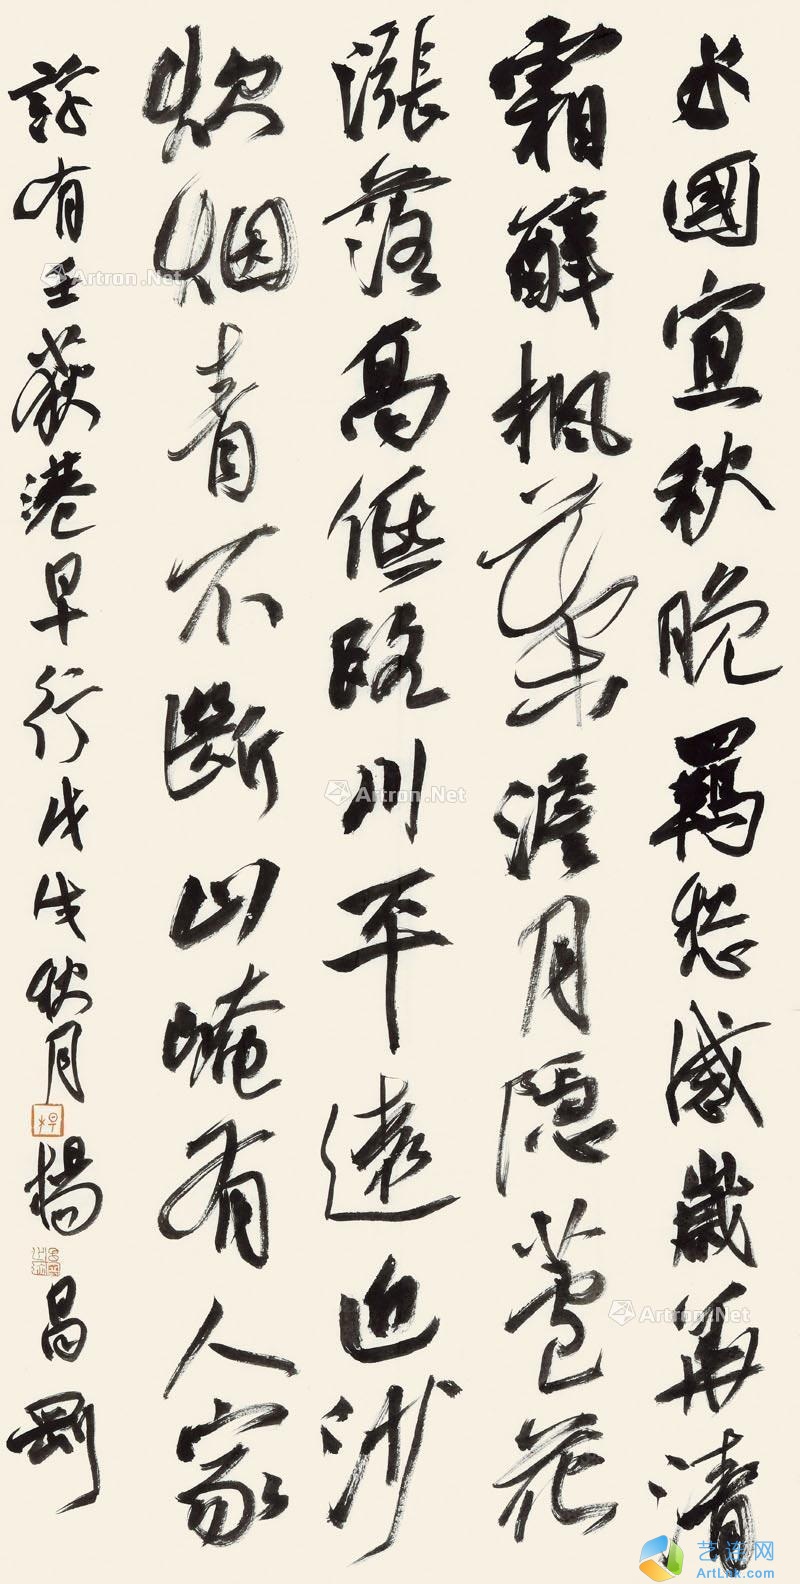 水國宜秋晚羈愁感歲華清
霜醉楓葉澹月隱蘆花
漲落高低路川平遠近沙
炊烟青不斷山崦有人家
許有壬荻港早行戊戌秋月
楊昌剛
Artron.Net
Artron.Net
Artron.Net
艺流网
ArtLnk.com